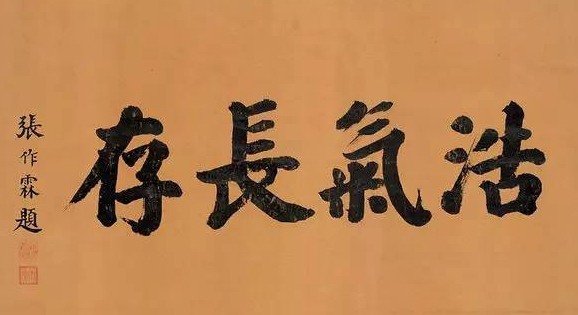 浩氣長存
張作霖題